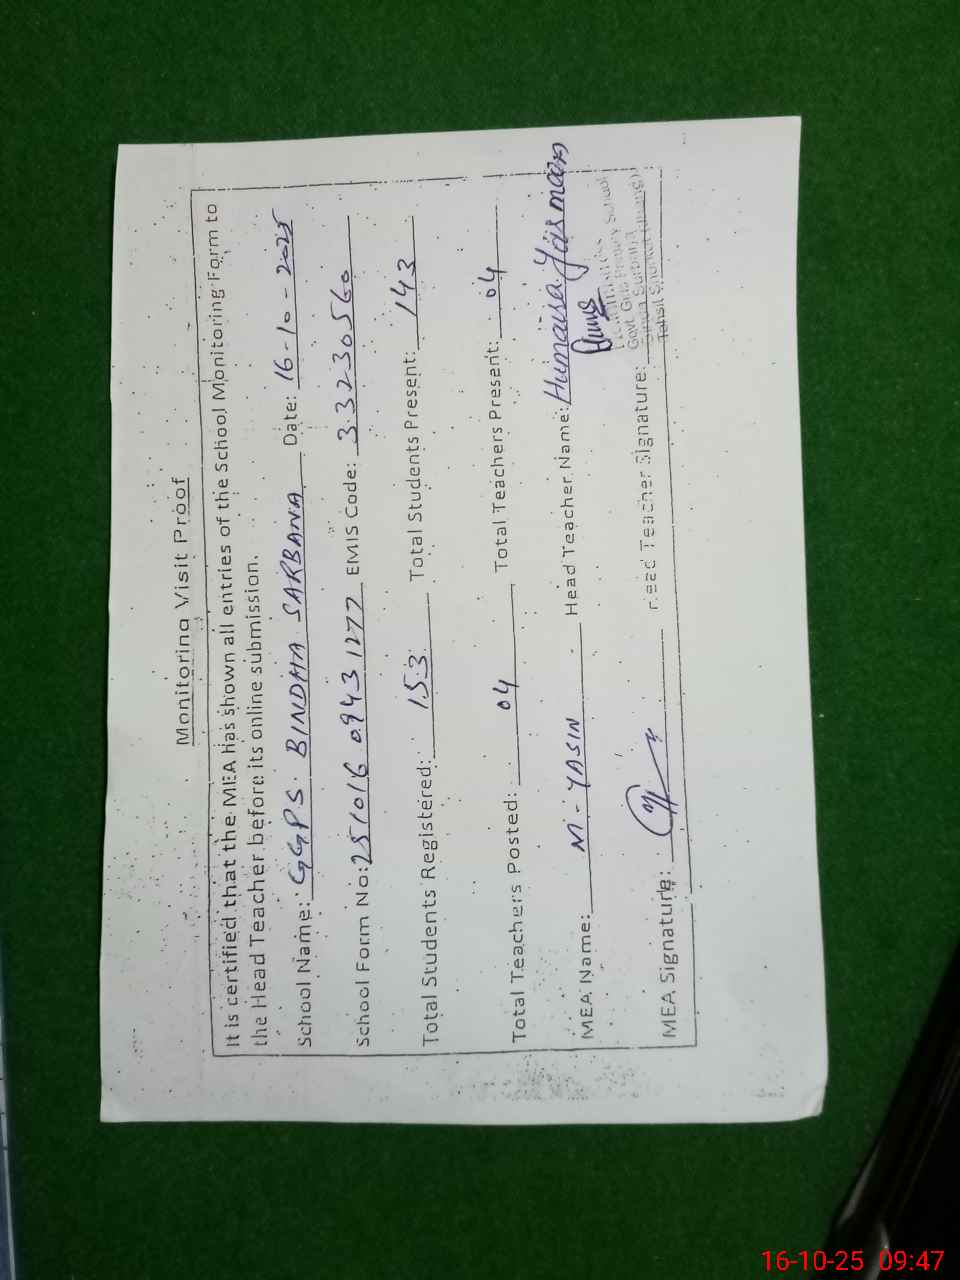 Monitoring Visit Proof
It is certified that the MEA has shown all entries of the School Monitoring Form to
the Head Teacher before its online submission.
School Name: GGPS. BINDHA SARBANA Date: 16-10-2025
School Form No: 251016 09431277 EMIS Code: 33230560
Total Students Registered: 153 Total Students Present: 143
Total Teachers Posted: 04 Total Teachers Present: 04
MEA Name: M-YASIN Head Teacher Name: Humaisa Yasmeen
MEA Signature: Head Teacher Signature:
Govt. Girls Primary School
Tehsil Shorkot (Jhang)
16-10-25 09:47